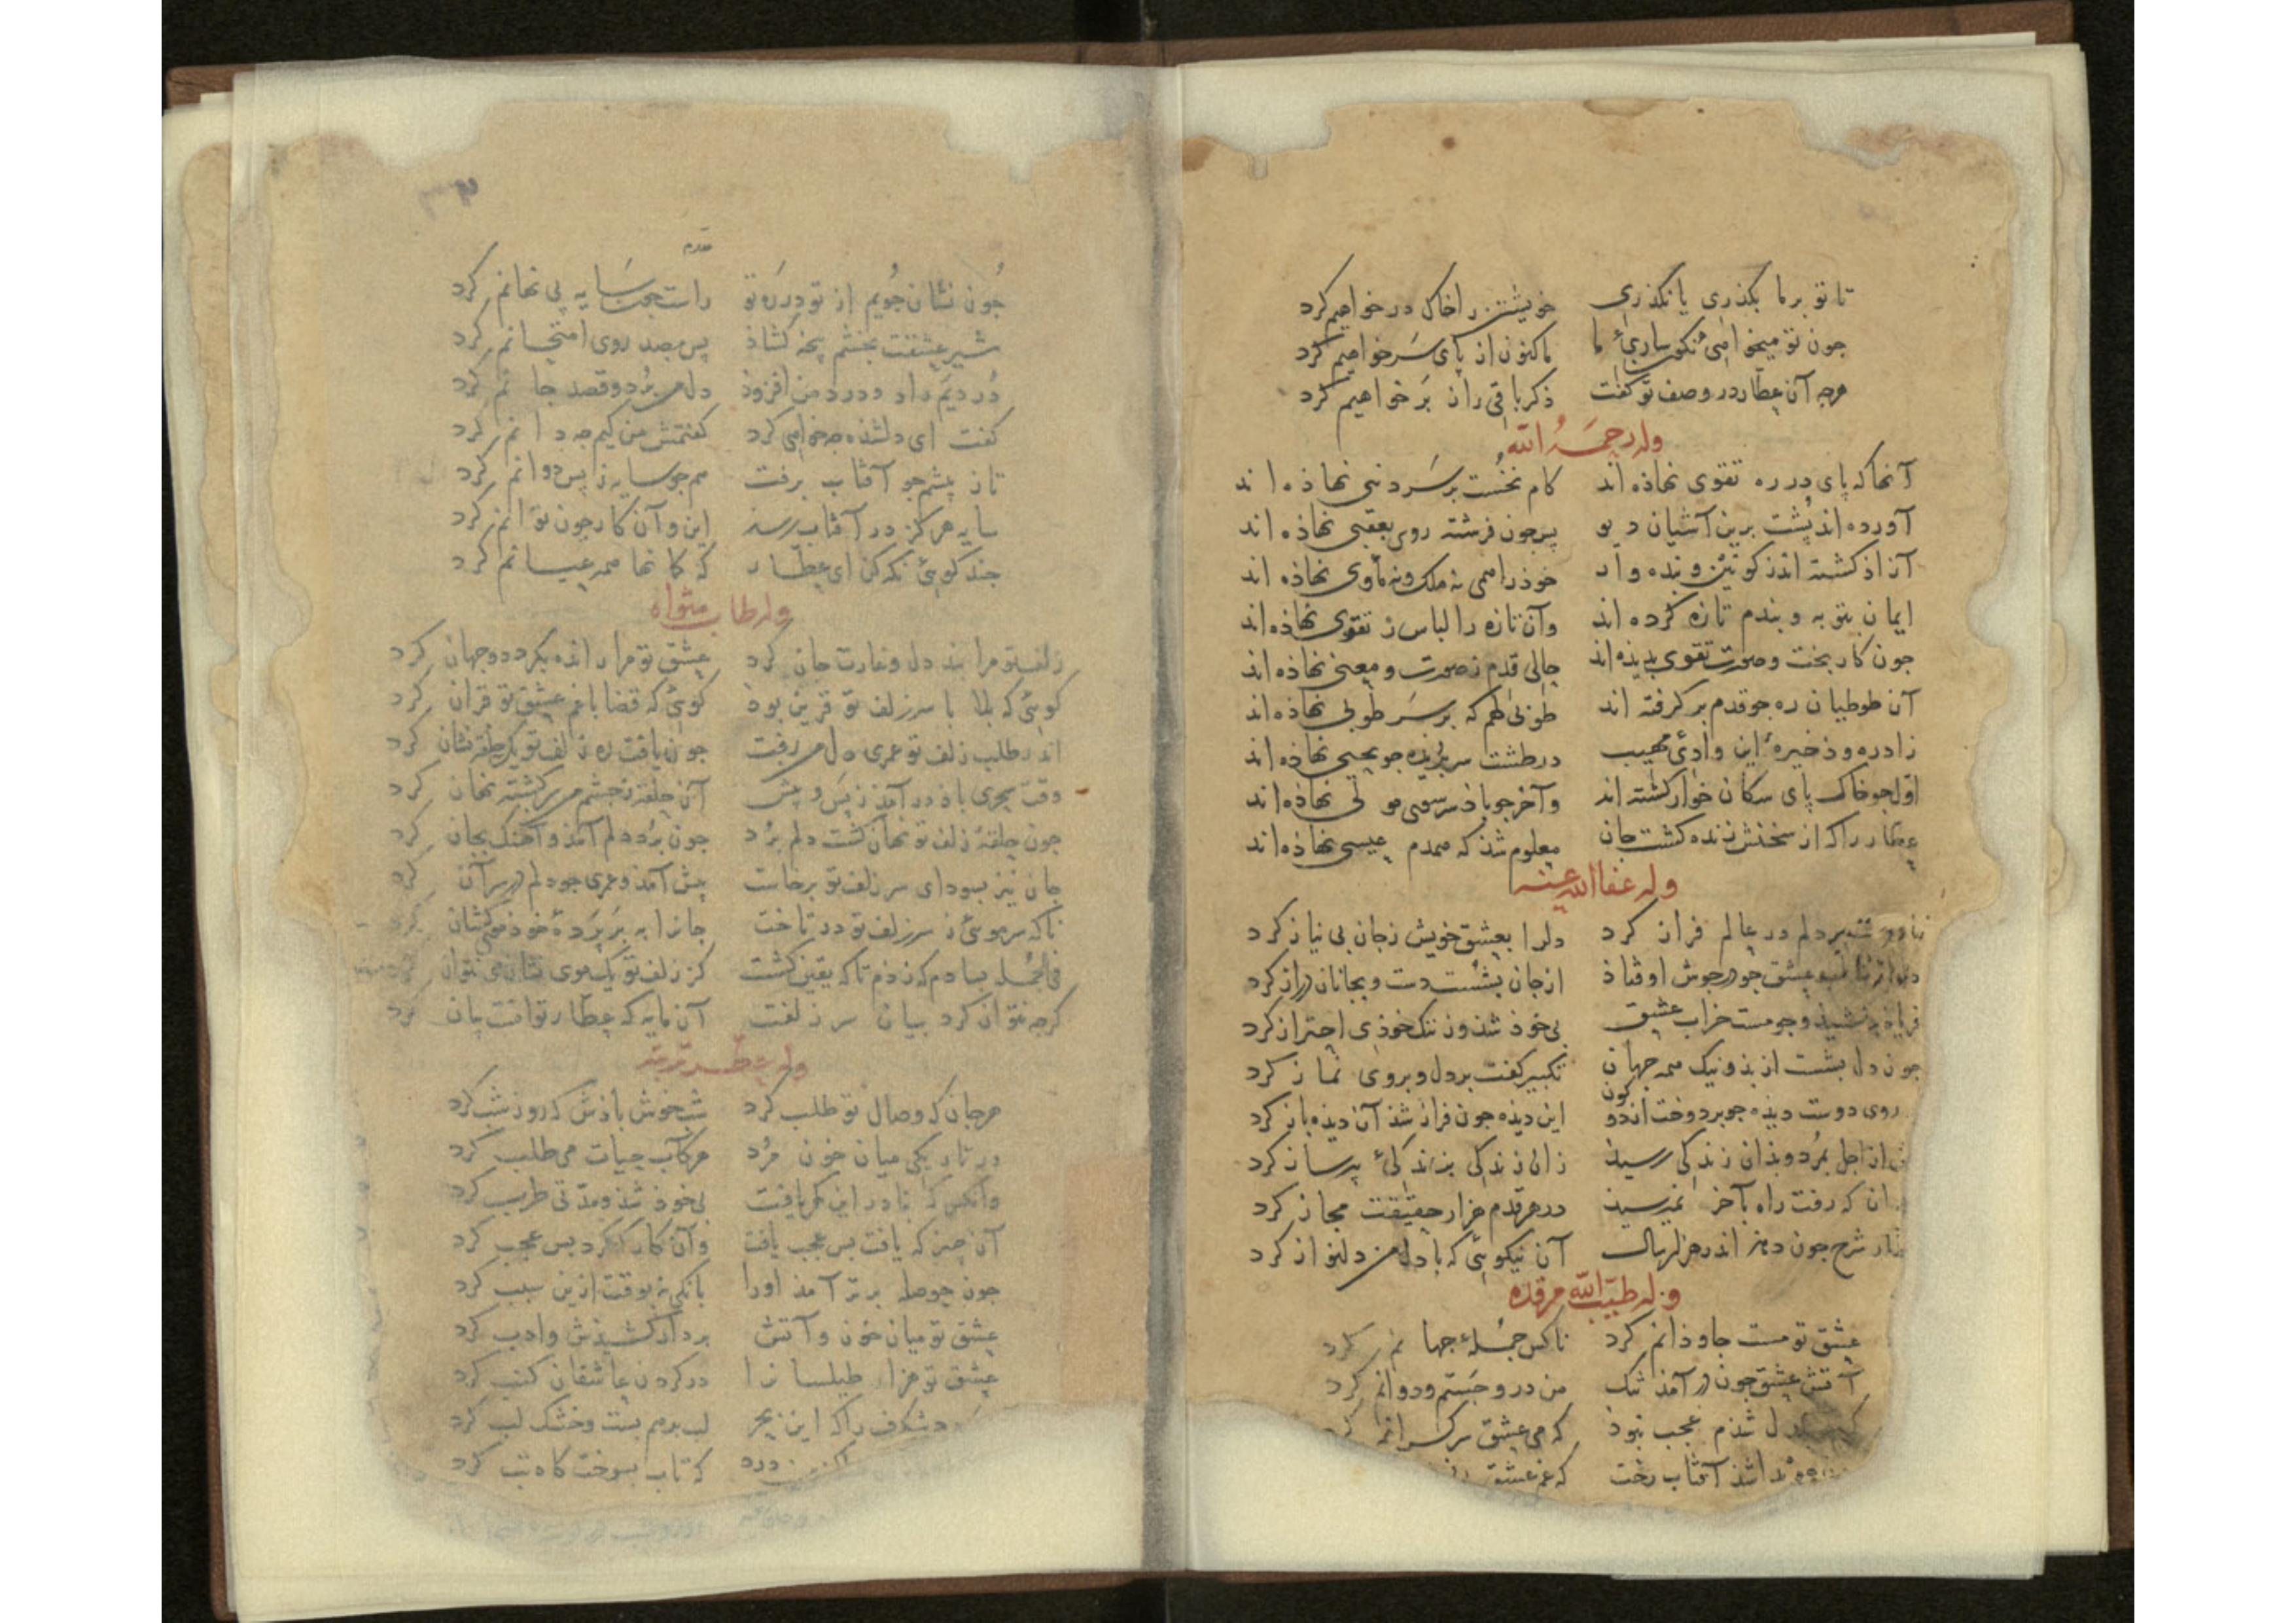 تا تو بر ما بکذری یا نکذری خویشتن را خاک در خواهیم کرد
جون تو میخواهی نکوساری ما ما کنون از پای سر خواهیم کرد
هرجه آن عطار در وصف تو کفت ذکر باقی زان بر خواهیم کرد
وله رحمه الله
آنها که پای در ره تقوی نهاذه اند کام نخست بر سر دنیی نهاذه اند
آورده اند پشت برین آشیان دیو پس جون فرشته روی بعقبی نهاذه اند
آزاذ کشته اند ز کونین و بنده وار خوذ را همی نه ملک و نه ماوی نهاذه اند
ایمان بتوبه و بندم تازه کرده اند وآن تازه را لباس ز تقوی نهاذه اند
جون کار بخت و صورت تقوی بدیذه اند حالی قدم ز صورت و معنی نهاذه اند
آن طوطیان ره جو قدم بر کرفته اند طوبی لهم که بر سر طوبی نهاذه اند
زاد ره و ذخیره این وادئ مهیب در طشت سر بریذه جو یحیی نهاذه اند
اول جو خاک پای سکان خوار کشته اند وآخر جو باذ سر سوی مولی نهاذه اند
عطار را که از سخنش زنده کشت جان معلوم شذ که همدم عیسی نهاذه اند
وله عفا الله عنه
بر دلم در عالم فراز کرد دلرا بعشق خویش زجان بی نیاز کرد
عشق جو در جوش اوفتاذ از جان بشست دست و بجانان دراز کرد
و جو مست خراب عشق بی خوذ شذ وز ننک خوذی احتراز کرد
جون دل بشست از بذ و نیک همه جهان تکبیر کفت بر دل و بروی نماز کرد
روی دوست دیذه جو بر دوخت اندو کون این دیذه جون فراز شذ آن دیذه باز کرد
از اجل بمرد و بذان زندکی رسیذ زان زندکی بزندکئ بر ساز کرد
ان که رفت راه بآخر نمی رسیذ در هر قدم هزار حقیقت مجاز کرد
شرح جون دهم اندر هزار سال آن نیکوئی که با دل من دلنواز کرد
وله طیب الله مرقده
عشق تو مست جاوذانم کرد ناکس جملهٔ جهانم کرد
آتش عشق جون در آمذ تنک من درو جستم و دوانم کرد
دل شذم عجب نبوذ که می عشق سرکرانم
آفتاب رخت که غم عشق
جون نشان جویم از تو در ره تو راست جون سایه پی نهانم کرد
شیر عشقت بخشم پنجه کشاذ پس بصد روی امتحانم کرد
دردیم داد و درد من افزوذ دل من برد و قصد جانم کرد
کفت ای دلشذه جه خواهی کرد کفتمش من کیم جه دانم کرد
تا ز پیشم جو آفتاب برفت همجو سایه ز پس دوانم کرد
سایه هرکز در آفتاب رسذ این و آن کار جون توانم کرد
جند کوئی نکه کن ای عطار که کانها همه عیانم کرد
وله طاب مثواه
زلف تو مرا بند دل و غارت جان کرد عشق تو مرا رانده بکرد دو جهان کرد
کوئی که بلا با سر زلف تو قرین بوذ کوئی که قضا با غم عشق تو قران کرد
اندر طلب زلف تو عمری دل من رفت جون یافت ره زلف تو یک حلقه نشان کرد
وقت سحری باذ در آمذ ز پس و پیش آن حلقه ز جشم من سرکشته نهان کرد
جون حلقهٔ زلف تو نهان کشت دلم برد جون برد دلم آمذ و آهنک بجان کرد
جان نیز بسودای سر زلف تو برخاست پیش آمذ و عمری جو دلم در سر آن کرد
ناکه سر موئی ز سر زلف تو در تاخت جانرا به بس پردهٔ خوذ موی کشان کرد
فی الجمله بسا دم که زذم تا که یقین کشت کز زلف تو یک موی نشان می نتوان
کرجه نتوان کرد بیان سر زلفت آن مایه که عطار توانست بیان کرد
وله عطر تربته
هر جان که وصال تو طلب کرد شب خوش باذش که روز شب کرد
در تاریکی میان خون مرد هر کآب حیات می طلب کرد
وآنکس که بنا در این کهر یافت بی خوذ شذ و مدتی طرب کرد
آن جیز که یافت بس عجب یافت وآن کار که کرد بس عجب کرد
جون حوصله برتر آمذ اورا بانکی نه بوقت ازین سبب کرد
عشق تو میان خون و آتش بر دار کشیذش و ادب کرد
عشق تو هزار طیلسان را در کردن عاشقان کنب کرد
شکرف را که این بحر لب برهم بست و خشک لب کرد
درد که تاب بسوخت کاه تب کرد